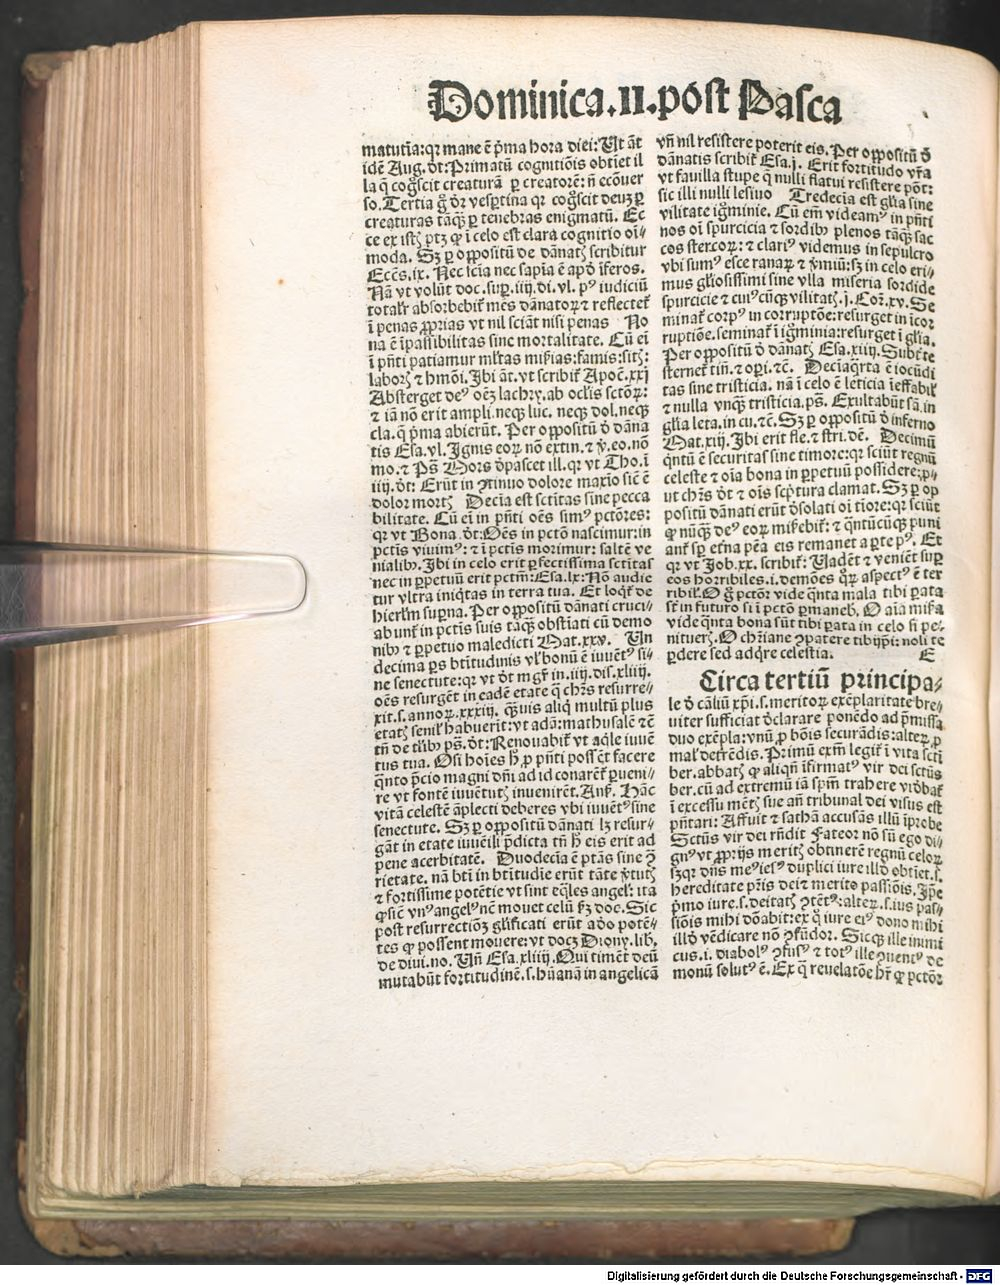 Dominica.II.post Pasca
matutīa:qꝛ mane ē p̄ma hora diei: Ut āt
idē Aug. dt: Primatū cognitiōis obtiet il
la q cog̅scit creaturā ꝑ creatorē: n̄ ecōuer
so. Tertia g̅ dr vesꝑtina qꝛ cog̅scit deuꝫ ꝑ
creaturas tāqꝫ ꝑ tenebras enigmatū. Ec
ce ex istꝭ ptꝫ ꝙ ī celo est clara cognitio oī⸗
moda. Sꝫ ꝑ oppositū de dānatꝭ scribitur
Eccs̄.ix. Nec scīa nec sapīa ē apd̓ īferos.
Nā vt volūt doc. suꝑ.iiij.di.vl. pꝰ iudiciū
totalr̄ absorbebit̄ mēs dānatoꝝ ⁊ reflectet̄
ī penas ꝓprias vt nil sciāt nisi penas No
na ē īpassibilitas sine mortalitate. Cū eī
ī pn̄ti patiamur ml̄tas mis̄ias: famis: sitꝭ:
laborꝭ ⁊ hm̄ōi. Ibi āt. vt scribit̄ Apoc̄.xxi
Absterget deꝰ oēꝫ lachry. ab ocl̄is sctōꝝ:
⁊ iā nō erit ampli. neqꝫ luc. neqꝫ dol. neqꝫ
cla. q̄ p̄ma abierūt. Per oppositū d̓ dāna
tis Esa.vl. Ignis eoꝝ nō extin. ⁊ v̄.eo. nō
mo. ⁊ Ps̄ Mors d̓pascet ill. qꝛ vt Tho. ī
iiij. dt: Erūt in ꝯtinuo dolore maxīo sic̄ ē
dolor mortꝭ Decīa est sctītas sine pecca
bilitate. Cū eī in pn̄ti oēs simꝰ pctōres:
qꝛ vt Bona. dt: Oēs in pctō nascimur: in
pctīs viuimꝰ: ⁊ ī pctīs morimur: saltē ve
nialibꝰ. Ibi in celo erit ꝑfectissima sctītas
nec in ꝑpetuū erit pctm̄: Esa.lx: Nō audie
tur vltra iniqtas in terra tua. Et loqt̄ de
hierlm̄ suꝑna. Per oppositū dānati cruci⸗
abunt̄ in pctīs suis tāqꝫ obstīati cū demo
nibꝰ ⁊ ꝑpetuo maledicti Mat.xxv. Un
decima ꝑs btītudinis vl̓ bonū ē iuuētꝰ si⸗
ne senectute: qꝛ vt dt mgr̄ in.iiij. dis.xliiij.
oēs resurgēt in eadē etate q̄ chr̄s resurre⸗
xit.s. annoꝝ.xxxiij. qꝫuis aliq̄ multū plus
etatꝭ senil̓ habuerīt: vt adā: mathusalē ⁊ē
tn̄ de til̄ibꝰ ps̄. dt: Renouabit̄ vt aq̄le iuuē
tus tua. O si hoīes hꝰ ꝓ pn̄ti possēt facere
q̄nto p̄cio magni dn̄i ad id conarēt̄ ꝑueni⸗
re vt fontē iuuētutꝭ inuenirēt. Ans̄. Hāc
vitā celestē āplecti deberes vbi iuuētꝰ sine
senectute. Sꝫ ꝑ oppositū dānati lꝫ resur⸗
gāt in etate iuuēili p̄dicta tn̄ hꝰ eis erit ad
pene acerbitatē. Duodecīa ē ptās sine ꝯ̄
rietate. nā btī in btitudīe erūt tāte v̄tutꝭ
⁊ fortissime potētie vt sint eq̄les angel̓: ita
ꝙ sic̄ vnꝰ angelꝰ nē mouet celū fꝫ doc. Sic
post resurrectiōꝫ gl̓ificati erūt ad̓o potē⸗
tes ꝙ possent mouere: vt docꝫ Diony. lib.
de diui. no. Un̄ Esa.xliiij. Qui timēt deū
mutabūt fortitudinē.s. hūanā in angelicā
vn̄ nil resistere poterit eis. Per oppositū d̓
dānatis scribit̄ Esa.j. Erit fortitudo vr̄a
vt fauilla stupe q̄ nulli flatui resistere pōt:
sic illi nulli lesiuo Tredecīa est gl̓ia sine
vilitate ig̅minie. Cū em̄ videamꝰ in pn̄ti
nos oī spurcicia ⁊ sordibꝰ plenos tāqꝫ sac
cos stercoꝝ: ⁊ clariꝰ videmus in sepulcro
vbi sumꝰ esce ranaꝝ ⁊ v̄miū: sꝫ in celo eri⸗
mus gl̓osissimi sine vlla miseria sordide
spurcicie ⁊ cuiꝰcūqꝫ vilitatꝭ. j. Coꝛ̄.xv. Se
minat̄ corpꝰ in corruptōe: resurget in īcor
ruptiōe. seminat̄ ī ig̅minia: resurget ī gl̓ia.
Per oppositū d̓ dānatꝭ Esa.xiiij. Subt̓ te
sternet̄ tin̄. ⁊ oꝑi. ⁊c̄. Decīaq̄rta ē iocūdi
tas sine tristicia. nā ī celo ē leticia īeffabil̓
⁊ nulla vnqꝫ tristicia. ps̄. Exultabūt sā. in
gl̓ia leta. in cu. ⁊c̄. Sꝫ ꝑ oppositū d̓ inferno
Mat.xiij. Ibi erit fle. ⁊ stri. dē. Decimū
q̄ntū ē securitas sine timore: qꝛ sciūt regnū
celeste ⁊ oīa bona in ꝑpetuū possidere: ꝓ⸗
ut chr̄s dt ⁊ oīs scptura clamat. Sꝫ ꝑ op
positū dānati erūt d̓solati oī tiore: qꝛ sciūt
ꝙ nūqꝫ deꝰ eoꝝ mis̄ebit̄: ⁊ q̄ntūcūqꝫ puni
ant̄ sp̄ etna pēa eis remanet a ꝑte pꝰ. Et
qꝛ vt Job.xx. scribit̄: Uadēt ⁊ veniēt suꝑ
eos horribiles.i. demōes q̄ꝝ aspectꝰ ē ter
ribil̓. O g̅ pctōr vide q̄nta mala tibi ꝑata
st̄ in futuro si ī pctō ꝑmanebꝭ. O aīa mis̄a
vide q̄nta bona sūt tibi ꝑata in celo si pe⸗
nituerꝭ. O chr̄iane ꝯpatere tibijpī: noli te
ꝑdere sed adq̄re celestia. E
Circa tertiū principa⸗
le d̓ cāliū xp̄i.s. meritoꝝ exēplaritate bre⸗
uiter sufficiat d̓clarare ponēdo ad p̄missa
duo exēpla: vnū ꝓ bōis securādis: alteꝝ ꝓ
mal̓ det̄rēdis. Primū exm̄ legit̄ ī vita sctī
ber. abbatꝭ ꝙ aliqn̄ īfirmatꝰ vir dei sctūs
ber. cū ad extremū iā spm̄ trahere vid̓bat̄
ī excessu mētꝭ sue an̄ tribunal dei visus est
pn̄tari: Affuit ⁊ sathā accusās illū īprobe
Sctūs vir dei rn̄dit Fateor nō sū ego di⸗
gnꝰ vt ꝓprijs meritꝭ obtinerē regnū celoꝝ
sꝫqꝛ dn̄s meꝰ iesꝰ duplici iure illd̓ obtiet.s.
hereditate pr̄is dei ⁊ merito passiōis. Ip̄e
p̄mo iure.s. deitatꝭ ꝯtētꝰ: alteꝝ.s. ius pas⸗
siōis mihi dōabit: ex q̄ iure eiꝰ dono mihi
illd̓ vēdicare nō ꝯfūdor. Sicqꝫ ille inimi
cus.i. diabolꝰ ꝯfusꝰ ⁊ totꝰ ille ꝯuentꝰ de
monū solutꝰ ē. Ex q̄ reuelatōe hr̄ ꝙ pctōꝛ
Digitalisierung gefördert durch die Deutsche Forschungsgemeinschaft - DFG